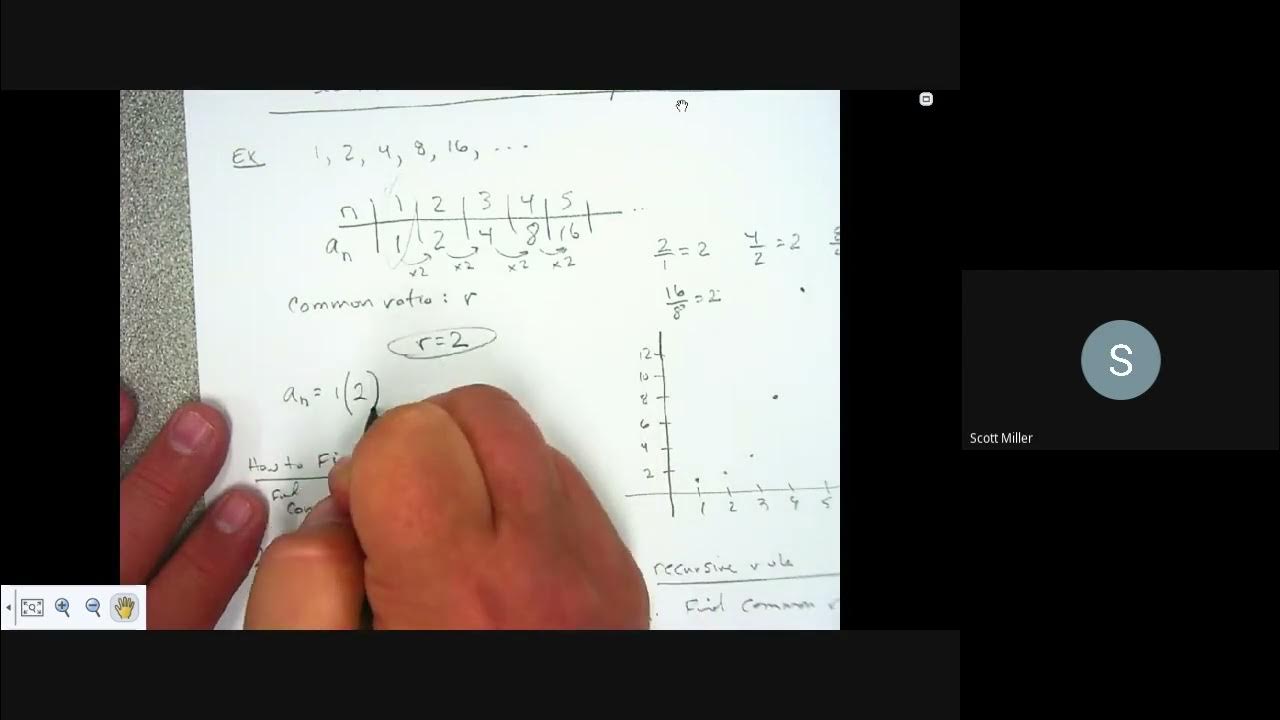 Ex 1, 2, 4, 8, 16, ...
n 1 2 3 4 5 ...
aₙ 1 2 4 8 16
x2 x2 x2 x2
2/1 = 2 4/2 = 2
16/8 = 2
Common ratio: r
r=2
aₙ = 1(2)
12
10
8
6
4
2
1 2 3 4 5
How to
Find
recursive rule
Find common
S
Scott Miller